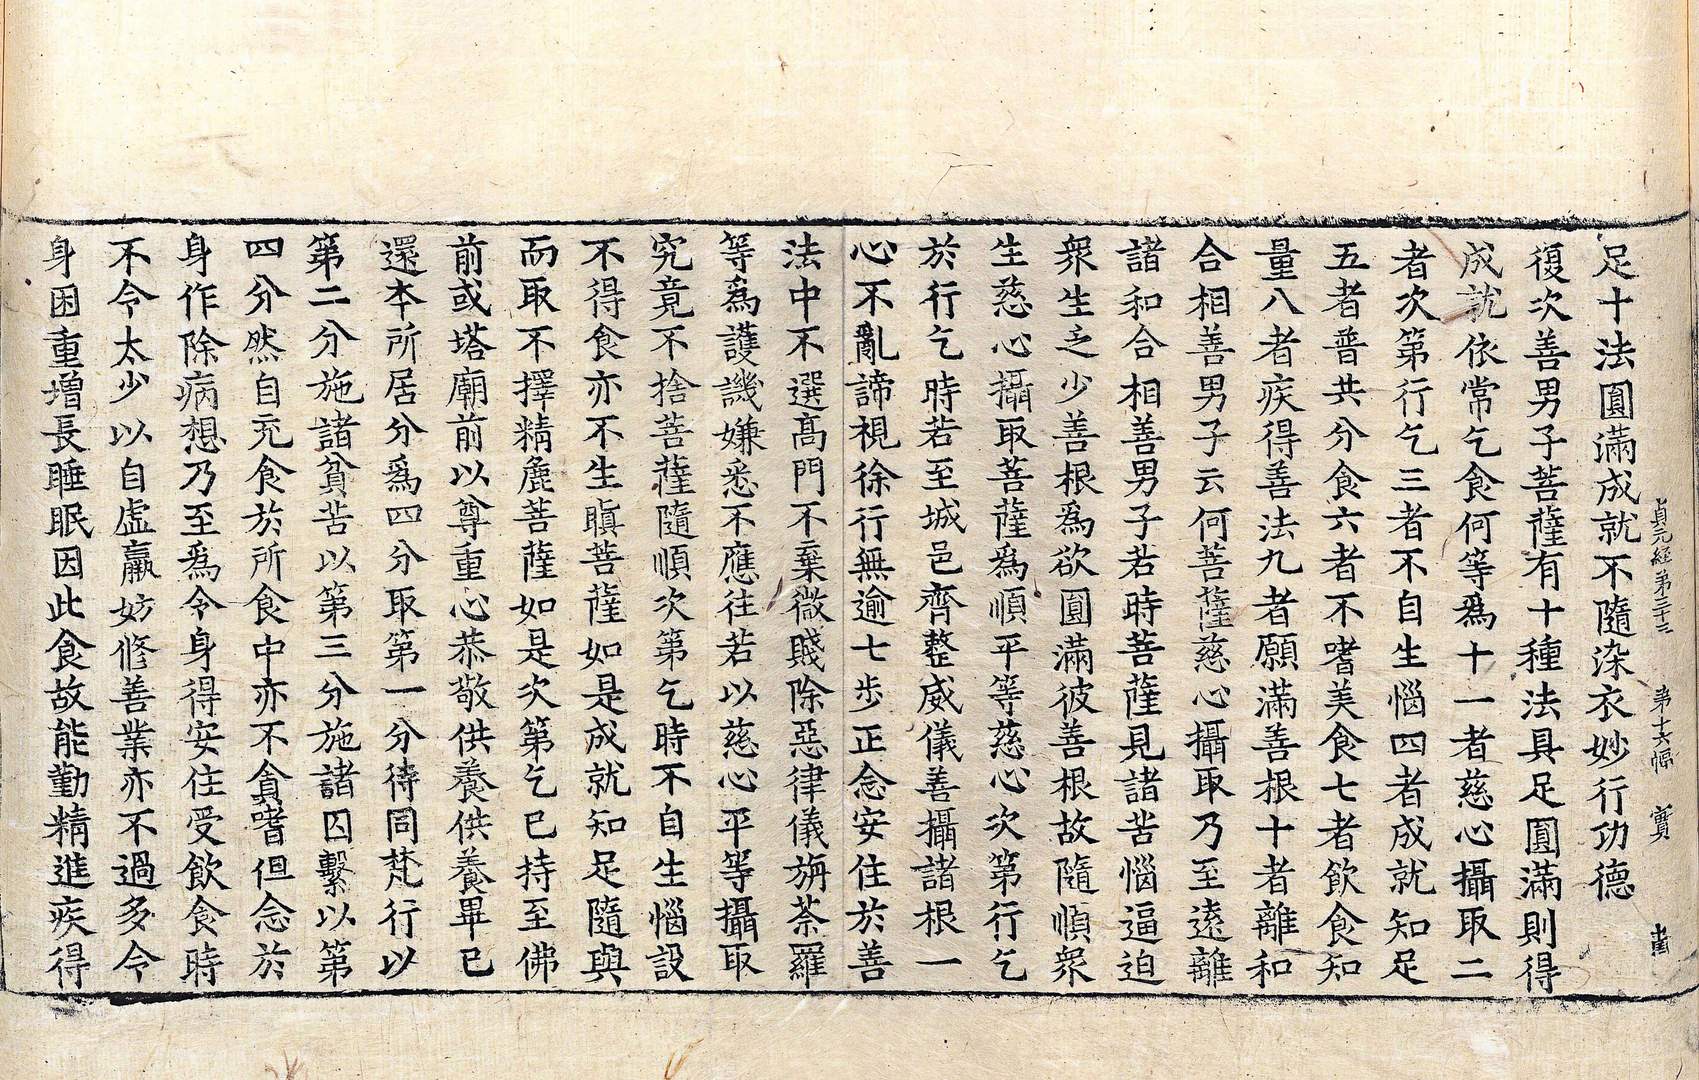 貞元經第三十三 第十六幅 實
足十法圓滿成就不隨染衣妙行功德
復次善男子菩薩有十種法具足圓滿則得
成就依常乞食何等爲十一者慈心攝取二
者次第行乞三者不自生惱四者成就知足
五者普共分食六者不嗜美食七者飲食知
量八者疾得善法九者願滿善根十者離和
合相善男子云何菩薩慈心攝取乃至遠離
諸和合相善男子若時菩薩見諸苦惱逼迫
衆生乏少善根爲欲圓滿彼善根故隨順衆
生慈心攝取菩薩爲順平等慈心次第行乞
於行乞時若至城邑齊整威儀善攝諸根一
心不亂諦視徐行無逾七步正念安住於善
法中不選高門不棄微賤除惡律儀旃荼羅
等爲護譏嫌悉不應往若以慈心平等攝取
究竟不捨菩薩隨順次第乞時不自生惱設
不得食亦不生瞋菩薩如是成就知足隨與
而取不擇精麁菩薩如是次第乞已持至佛
前或塔廟前以尊重心恭敬供養供養畢已
還本所居分爲四分取第一分待同梵行以
第二分施諸貧苦以第三分施諸囚繫以第
四分然自充食於所食中亦不貪嗜但念於
身作除病想乃至爲令身得安住受飲食時
不令太少以自虛羸妨修善業亦不過多令
身困重增長睡眠因此食故能勤精進疾得